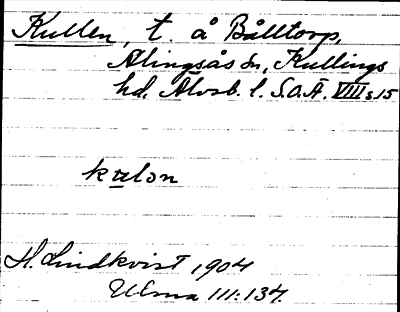 Kullen, t. å Bälltorp,
Alingsås sn, Kullings
hd, Älvsb. l. S.O.Ä. VIII s. 15
kulon
H. Lindkvist 1904
Ulma 111:137.